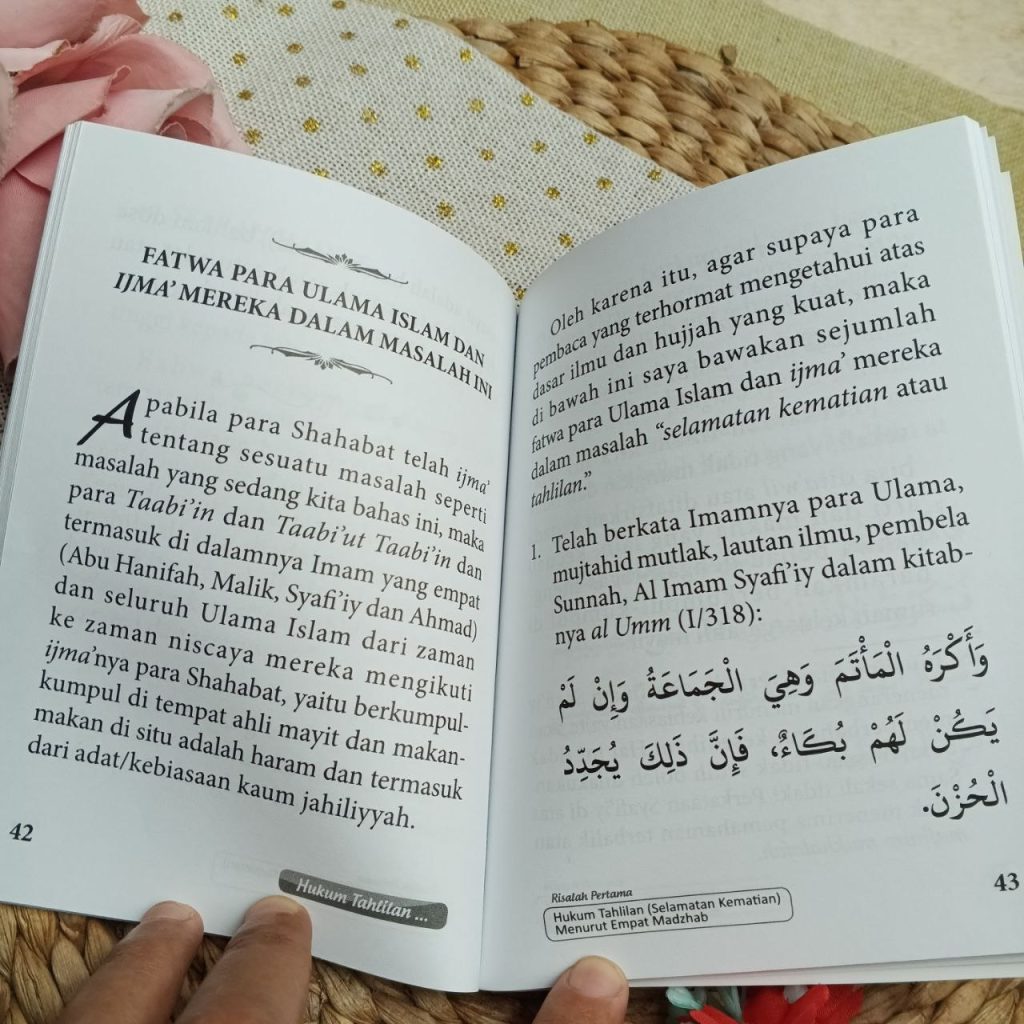 FATWA PARA ULAMA ISLAM DAN
IJMA’ MEREKA DALAM MASALAH INI
Apabila para Shahabat telah ijma’
tentang sesuatu masalah seperti
masalah yang sedang kita bahas ini, maka
para Taabi’in dan Taabi’ut Taabi’in dan
termasuk di dalamnya Imam yang empat
(Abu Hanifah, Malik, Syafi’iy dan Ahmad)
dan seluruh Ulama Islam dari zaman
ke zaman niscaya mereka mengikuti
ijma’nya para Shahabat, yaitu berkumpul-
kumpul di tempat ahli mayit dan makan-
makan di situ adalah haram dan termasuk
dari adat/kebiasaan kaum jahiliyyah.
42
Hukum Tahlilan ...
Oleh karena itu, agar supaya para
pembaca yang terhormat mengetahui atas
dasar ilmu dan hujjah yang kuat, maka
di bawah ini saya bawakan sejumlah
fatwa para Ulama Islam dan ijma’ mereka
dalam masalah “selamatan kematian atau
tahlilan.”
1. Telah berkata Imamnya para Ulama,
mujtahid mutlak, lautan ilmu, pembela
Sunnah, Al Imam Syafi’iy dalam kitab-
nya al Umm (I/318):
وَأَكْرَهُ الْمَأْتَمَ وَهِيَ الْجَمَاعَةُ وَإِنْ لَمْ
يَكُنْ لَهُمْ بُكَاءٌ، فَإِنَّ ذَلِكَ يُجَدِّدُ
الْحُزْنَ.
43
Risalah Pertama
Hukum Tahlilan (Selamatan Kematian)
Menurut Empat Madzhab